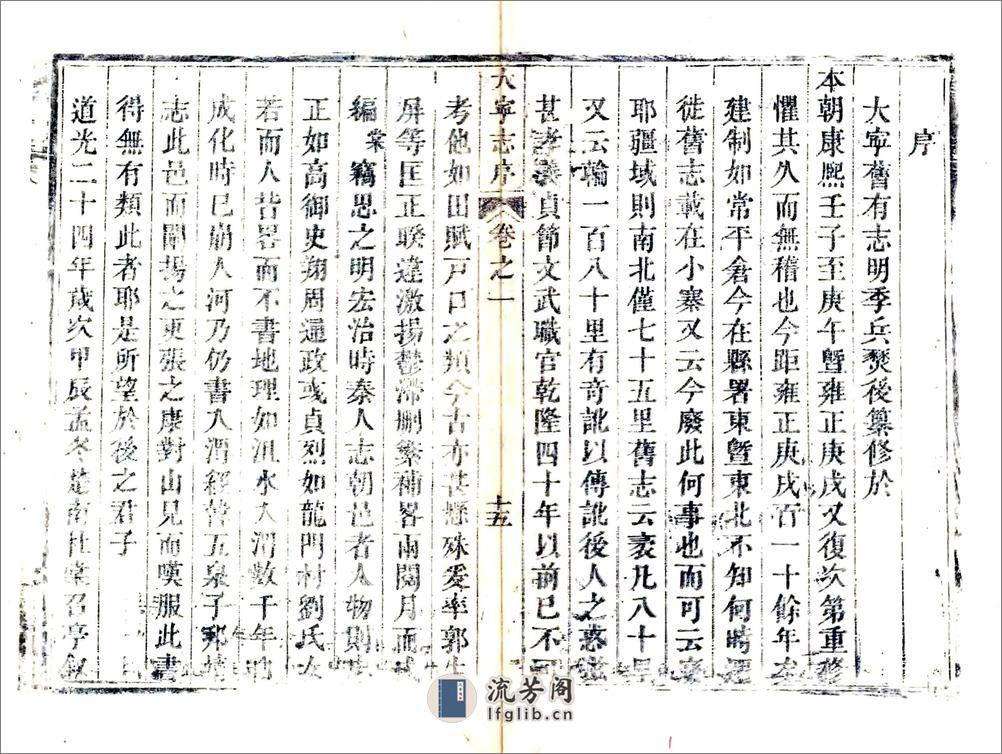 序
大寧舊有志明季兵燹後纂修於
本朝康熙壬子至庚午暨雍正庚戌又復次第重修
懼其久而無稽也今距雍正庚戌百一十餘年矣
建制如常平倉今在縣署東暨東北不知何時遷
徙舊志載在小寨又云今廢此何事也而可云
耶疆域則南北僅七十五里舊志云袤凡八十里
又云輪一百八十里有奇訛以傳訛後人之惑
甚孝義貞節文武職官乾隆四十年以前已不可
大寧志序 卷之一 十五
考他如田賦戸口之類今古亦甚懸殊爰率郭生
屏等匡正睽違激揚鬱滯刪繁補畧兩閱月而
編棠竊思之明宏治時泰人志朝邑者人物則
正如高御史翔周通政或貞烈如龍門村劉氏女
若而人皆畧而不書地理如沮水入渭數千年
成化時已崩入河乃仍書入渭經昔五泉子邦靖
志此邑而闡揚之更張之康對山見而嘆服此書
得無有類此者耶是所望於後之君子
道光二十四年歲次甲辰孟冬楚南杜棠召亭敘
流芳阁
lfglib.cn